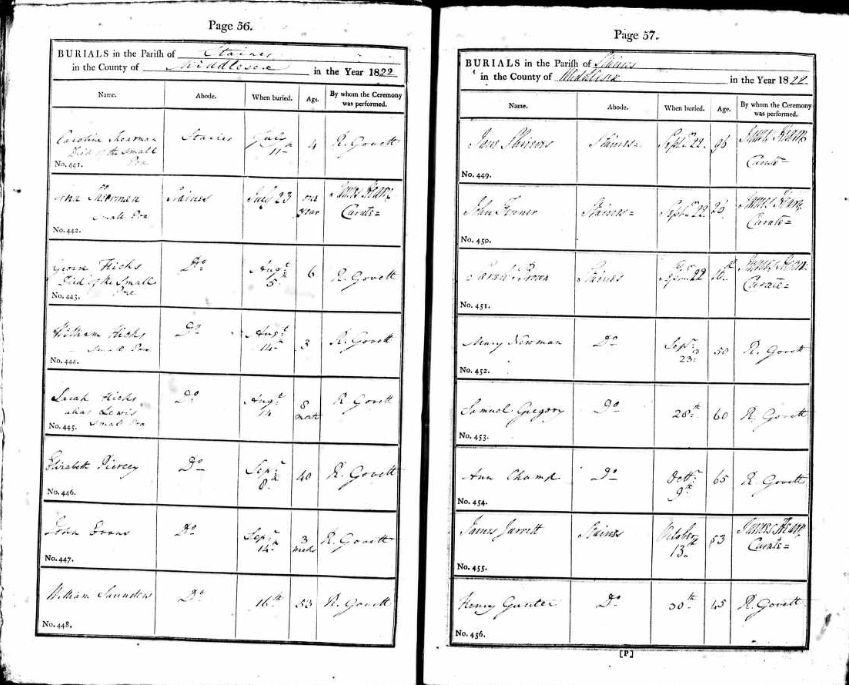 Page 56.
BURIALS in the Parish of Staines
in the County of Middlesex in the Year 1822
Name. Abode. When buried. Age. By whom the Ceremony was performed.
Caroline Shearman Staines July 11th 4 R. Govett
Died of the Small Pox
No. 441.
Ann Staines July 23 one year James Hearn Curate
Small Pox
No. 442.
Hicks Do Augt 5 6 R. Govett
Died of the Small Pox
No. 443.
William Hicks Do Augt 14 3 R. Govett
Small Pox
No. 444.
Sarah Hicks Do Augt 14 8 R Govett
alias Lewis
Small Pox
No. 445.
Elizabeth Piercey Do Sepr 8 40 R. Govett
No. 446.
John Evans Do Sepr 14 3 weeks R. Govett
No. 447.
William Saunders Do 16th 53 R. Govett
No. 448.
Page 57.
BURIALS in the Parish of Staines
in the County of Middlesex in the Year 1822
Name. Abode. When buried. Age. By whom the Ceremony was performed.
Staines Septr 22 James Hearn Curate
No. 449.
John Staines Septr 22 26 James Hearn Curate
No. 450.
Sarah Staines 22 James Hearn Curate
No. 451.
Mary Newman Do Sepr 23 50 R. Govett
No. 452.
Samuel Gregory Do 28th 60 R. Govett
No. 453.
Ann Champ Do Octr 9th 65 R. Govett
No. 454.
James Jarrett Staines October 13 53 James Hearn Curate
No. 455.
Henry Gunter Do 30th 45 R. Govett
No. 456.
[P]